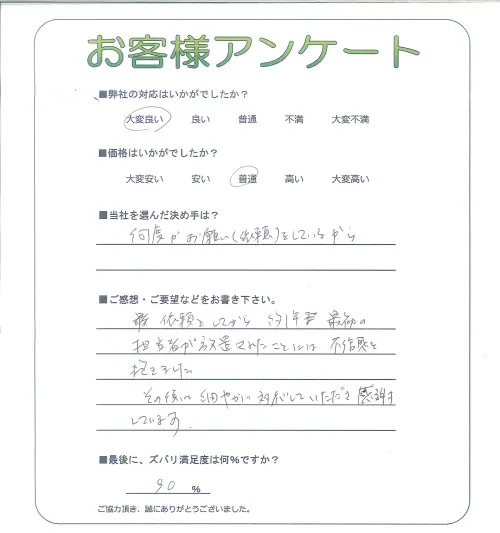 お客様アンケート
■弊社の対応はいかがでしたか?
大変良い 良い 普通 不満 大変不満
■価格はいかがでしたか?
大変安い 安い 普通 高い 大変高い
■当社を選んだ決め手は?
何度かお願い(依頼)をしているから
■ご感想・ご要望などをお書き下さい。
依頼をしてから 約1年 最初の
担当者が放置されたことには 不信感を
抱きました
その後は 細やかに対応していただき 感謝
しています。
■最後に、ズバリ満足度は何%ですか?
90 %
ご協力頂き、誠にありがとうございました。